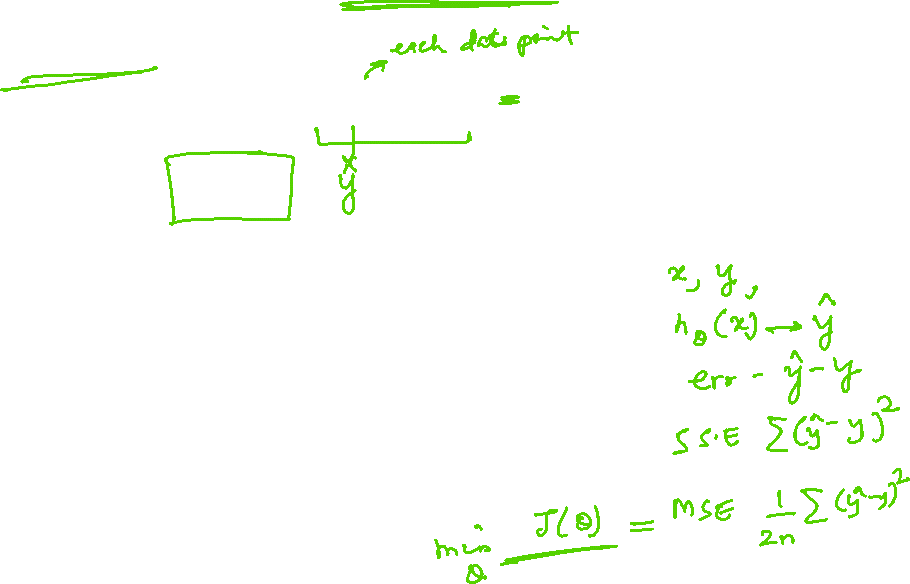 each data point
x
y
x, y,
h_θ(x) → ŷ
err - ŷ - y
SSE Σ(ŷ - y)²
min_θ J(θ) = MSE 1/2n Σ(ŷ - y)²